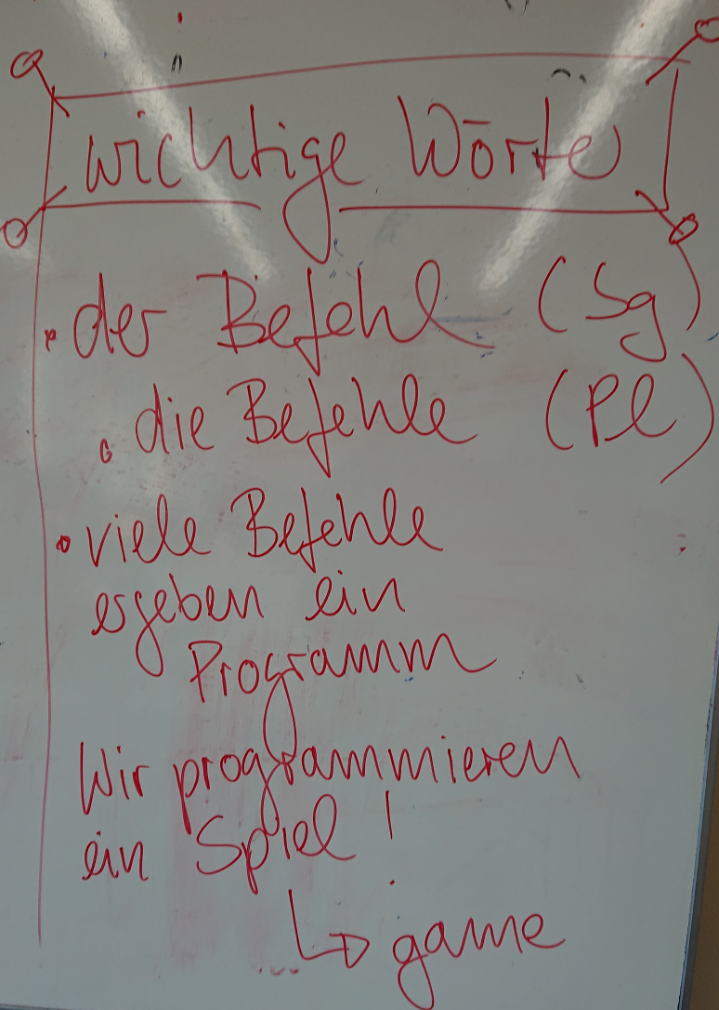 wichtige Wörter
• der Befehl (Sg)
• die Befehle (Pl)
• viele Befehle
ergeben ein
Programm
Wir programmieren
ein Spiel!
↳ game